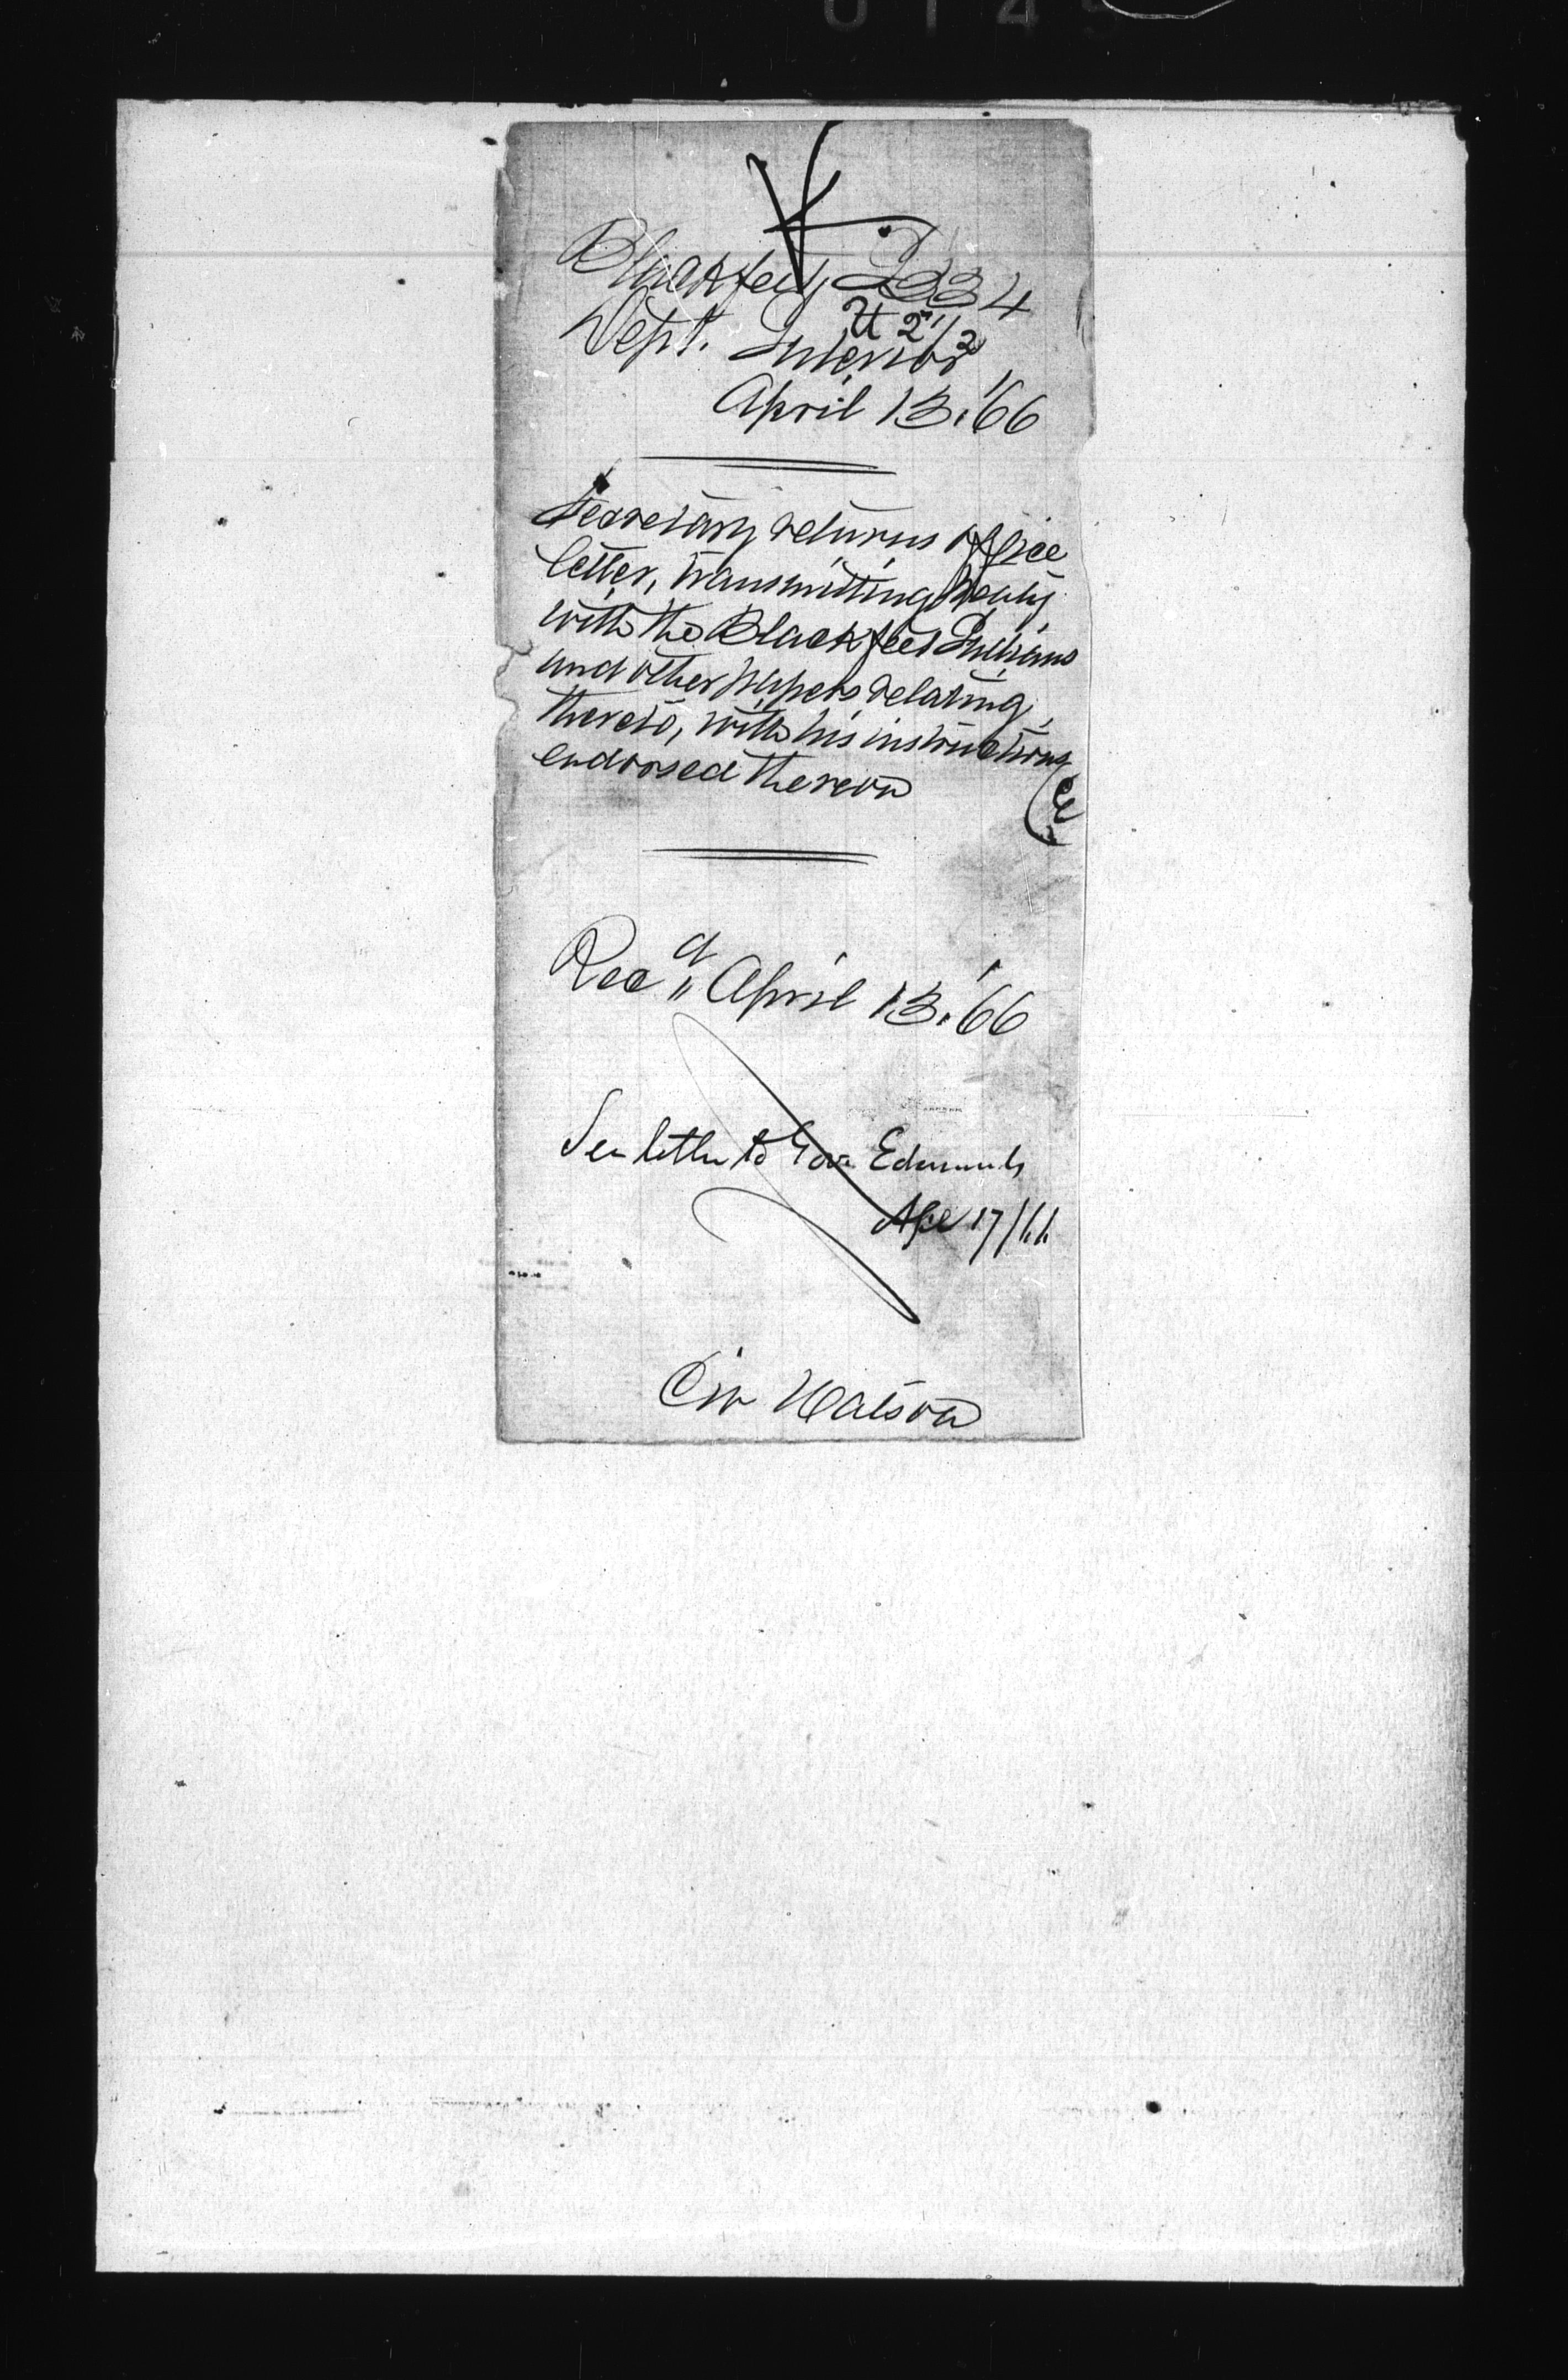 Blackfeet, I 334
Dept. Interior
April 13. '66
Secretary returns office
letter, transmitting treaty
with the Blackfeet Indians
and other papers relating
thereto, with his instructions
endorsed thereon
Rec d " April 13. '66
See letter to Gov. Edmunds
Apl 17/66
Watson